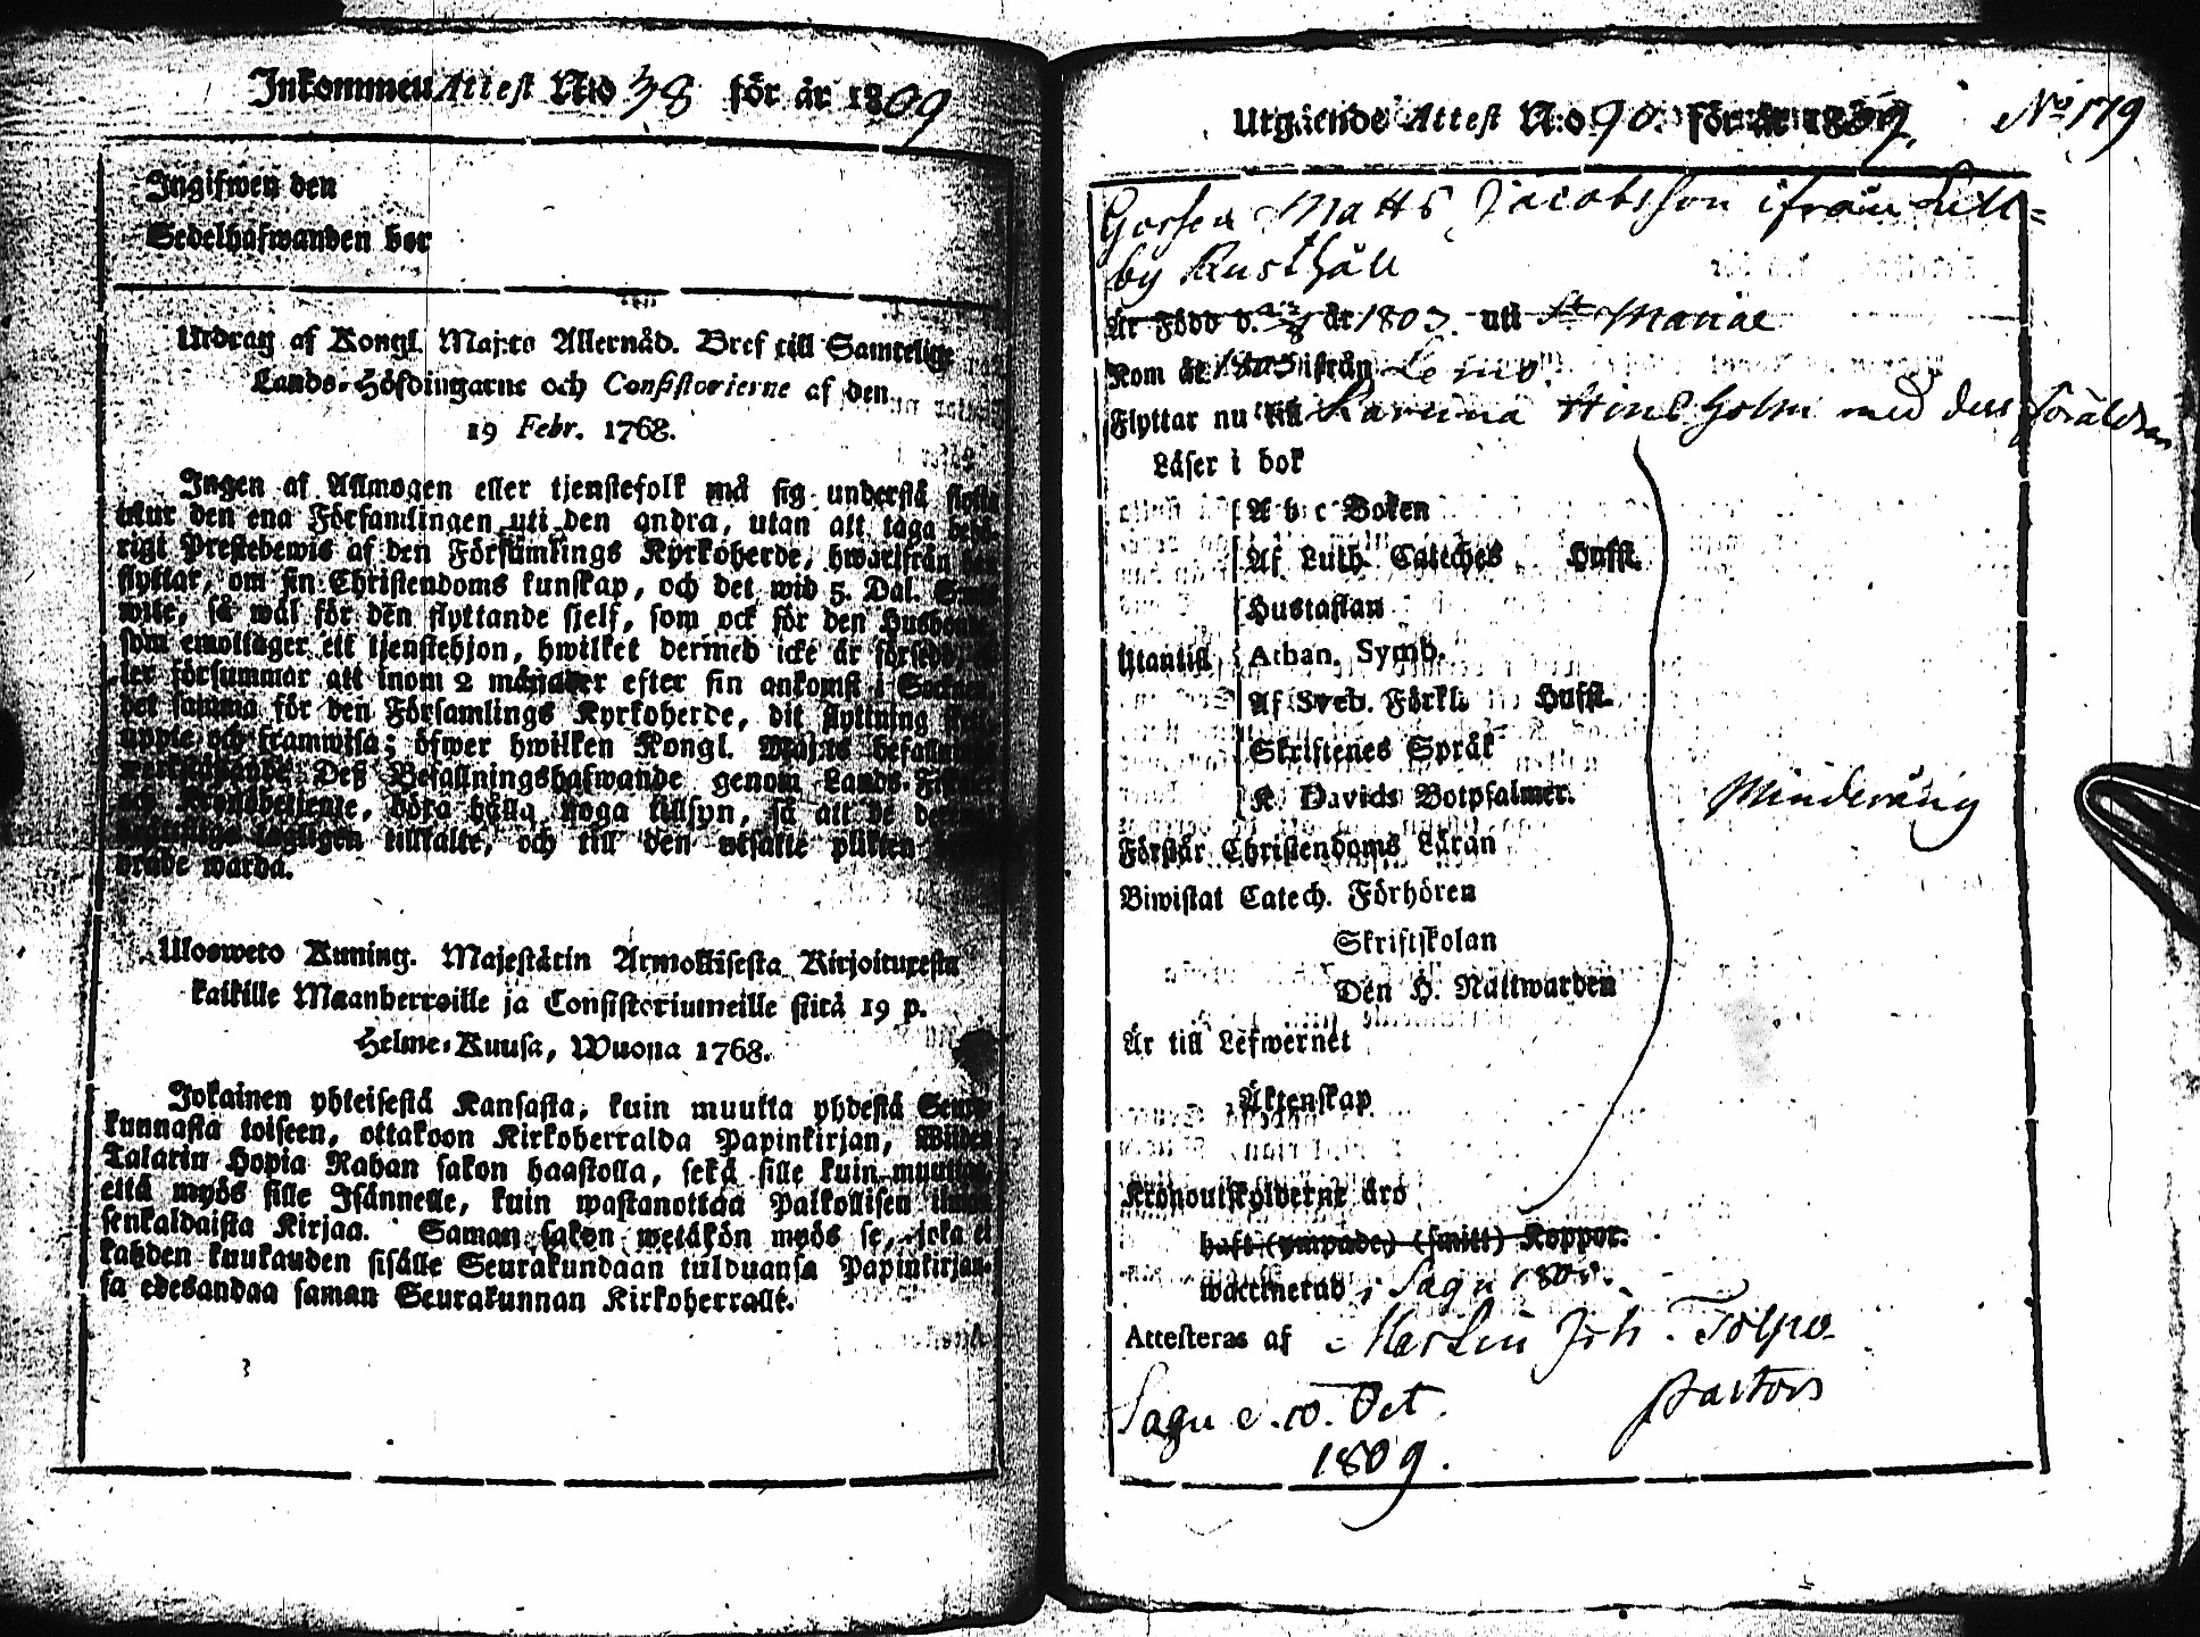 Inkommen Attest N:o 38 för år 1809
Ingifwen den
Sedelhafwanden bor
Utdrag af Kongl. Maj:ts Allernåd. Bref till Samtelige
Lands-Höfdingarne och Consistorierne af den
19 Febr. 1768.
Ingen af Allmogen eller tjenstefolk må sig understå flytta
utur den ena Församlingen uti den andra, utan att taga behö-
rigt Prestebewis af den Församlings Kyrkoherde, hwarifrån han
flyttar, om sin Christendoms kunskap, och det wid 5. Dal. S:mts
wite, så wäl för den flyttande sjelf, som ock för den Husbonde,
som emottager ett tjenstehjon, hwilket dermed icke är försedt, el-
ler försummar att inom 2 månader efter sin ankomst i Socknen
det samma för den Församlings Kyrkoherde, dit flyttning skett,
uppte och framwisa; öfwer hwilken Kongl. Maj:ts befallning
werkställande Deß Befallningshafwande genom Lands-Fiskaler
och Kronobetjente, böra hålla noga tillsyn, så att de
lagligen tilltalte, och till den utsatte plikten
warda.
Ulosweto Kuning. Majestätin Armollisesta Kirjoituxesta
kaikille Maanherroille ja Consistoriumeille siitä 19 p.
Helme-Kuusa, Wuona 1768.
Jokainen yhteisestä Kansasta, kuin muutta yhdestä Seura-
kunnasta toiseen, ottakoon Kirkoherralda Papinkirjan, Wiiden
Talarin Hopia Rahan sakon haastolla, sekä sille kuin muuttaa,
että myös sille Isännelle, kuin wastanottaa Palkollisen ilman
senkaldaista Kirjaa. Saman sakon wetäkön myös se, joka ei
kahden kuukauden sisälle Seurakundaan tulduansa Papinkirjaan-
sa edesandaa saman Seurakunnan Kirkoherralle.
Utgående Attest N:o 90. för år 1809. No 179
Gossen Matts Jacobsson ifrån Lill=
by Rusthåll
Är Född d. år 1803. uti St Mariae
Kom år 1803 ifrån Lemo
Flyttar nu till Karuna Stenholm med dess föräldrar
Läser i bok
A b c Boken
Af Luth. Cateches Hufst.
Hustaflan
Utantill Athan. Symb.
Af Sveb. Förkl. Hufst.
Skriftenes Språk
K. Davids Botpsalmer. Minderårig
Förstår Christendoms Läran
Biwistat Catech. Förhören
Skriftskolan
Den H. Nattwarden
Är till Lefwernet
Äktenskap
Kronoutskylderne äro
haft (ympade) (smitt) Koppor.
waccinerad i Sagu
Attesteras af Martin Joh. Tolpo
Sagu d. 10. Oct. Pastor
1809.